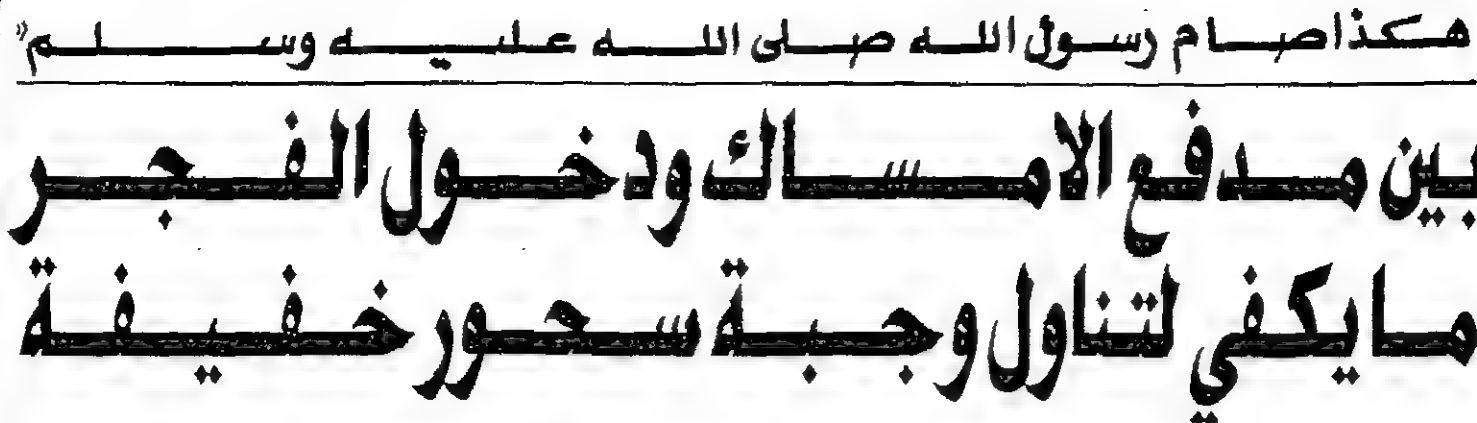 هكذا صام رسول الله صلى الله عليه وسلم"
بين مدفع الامساك ودخول الفجر
ما يكفي لتناول وجبة سحور خفيفة